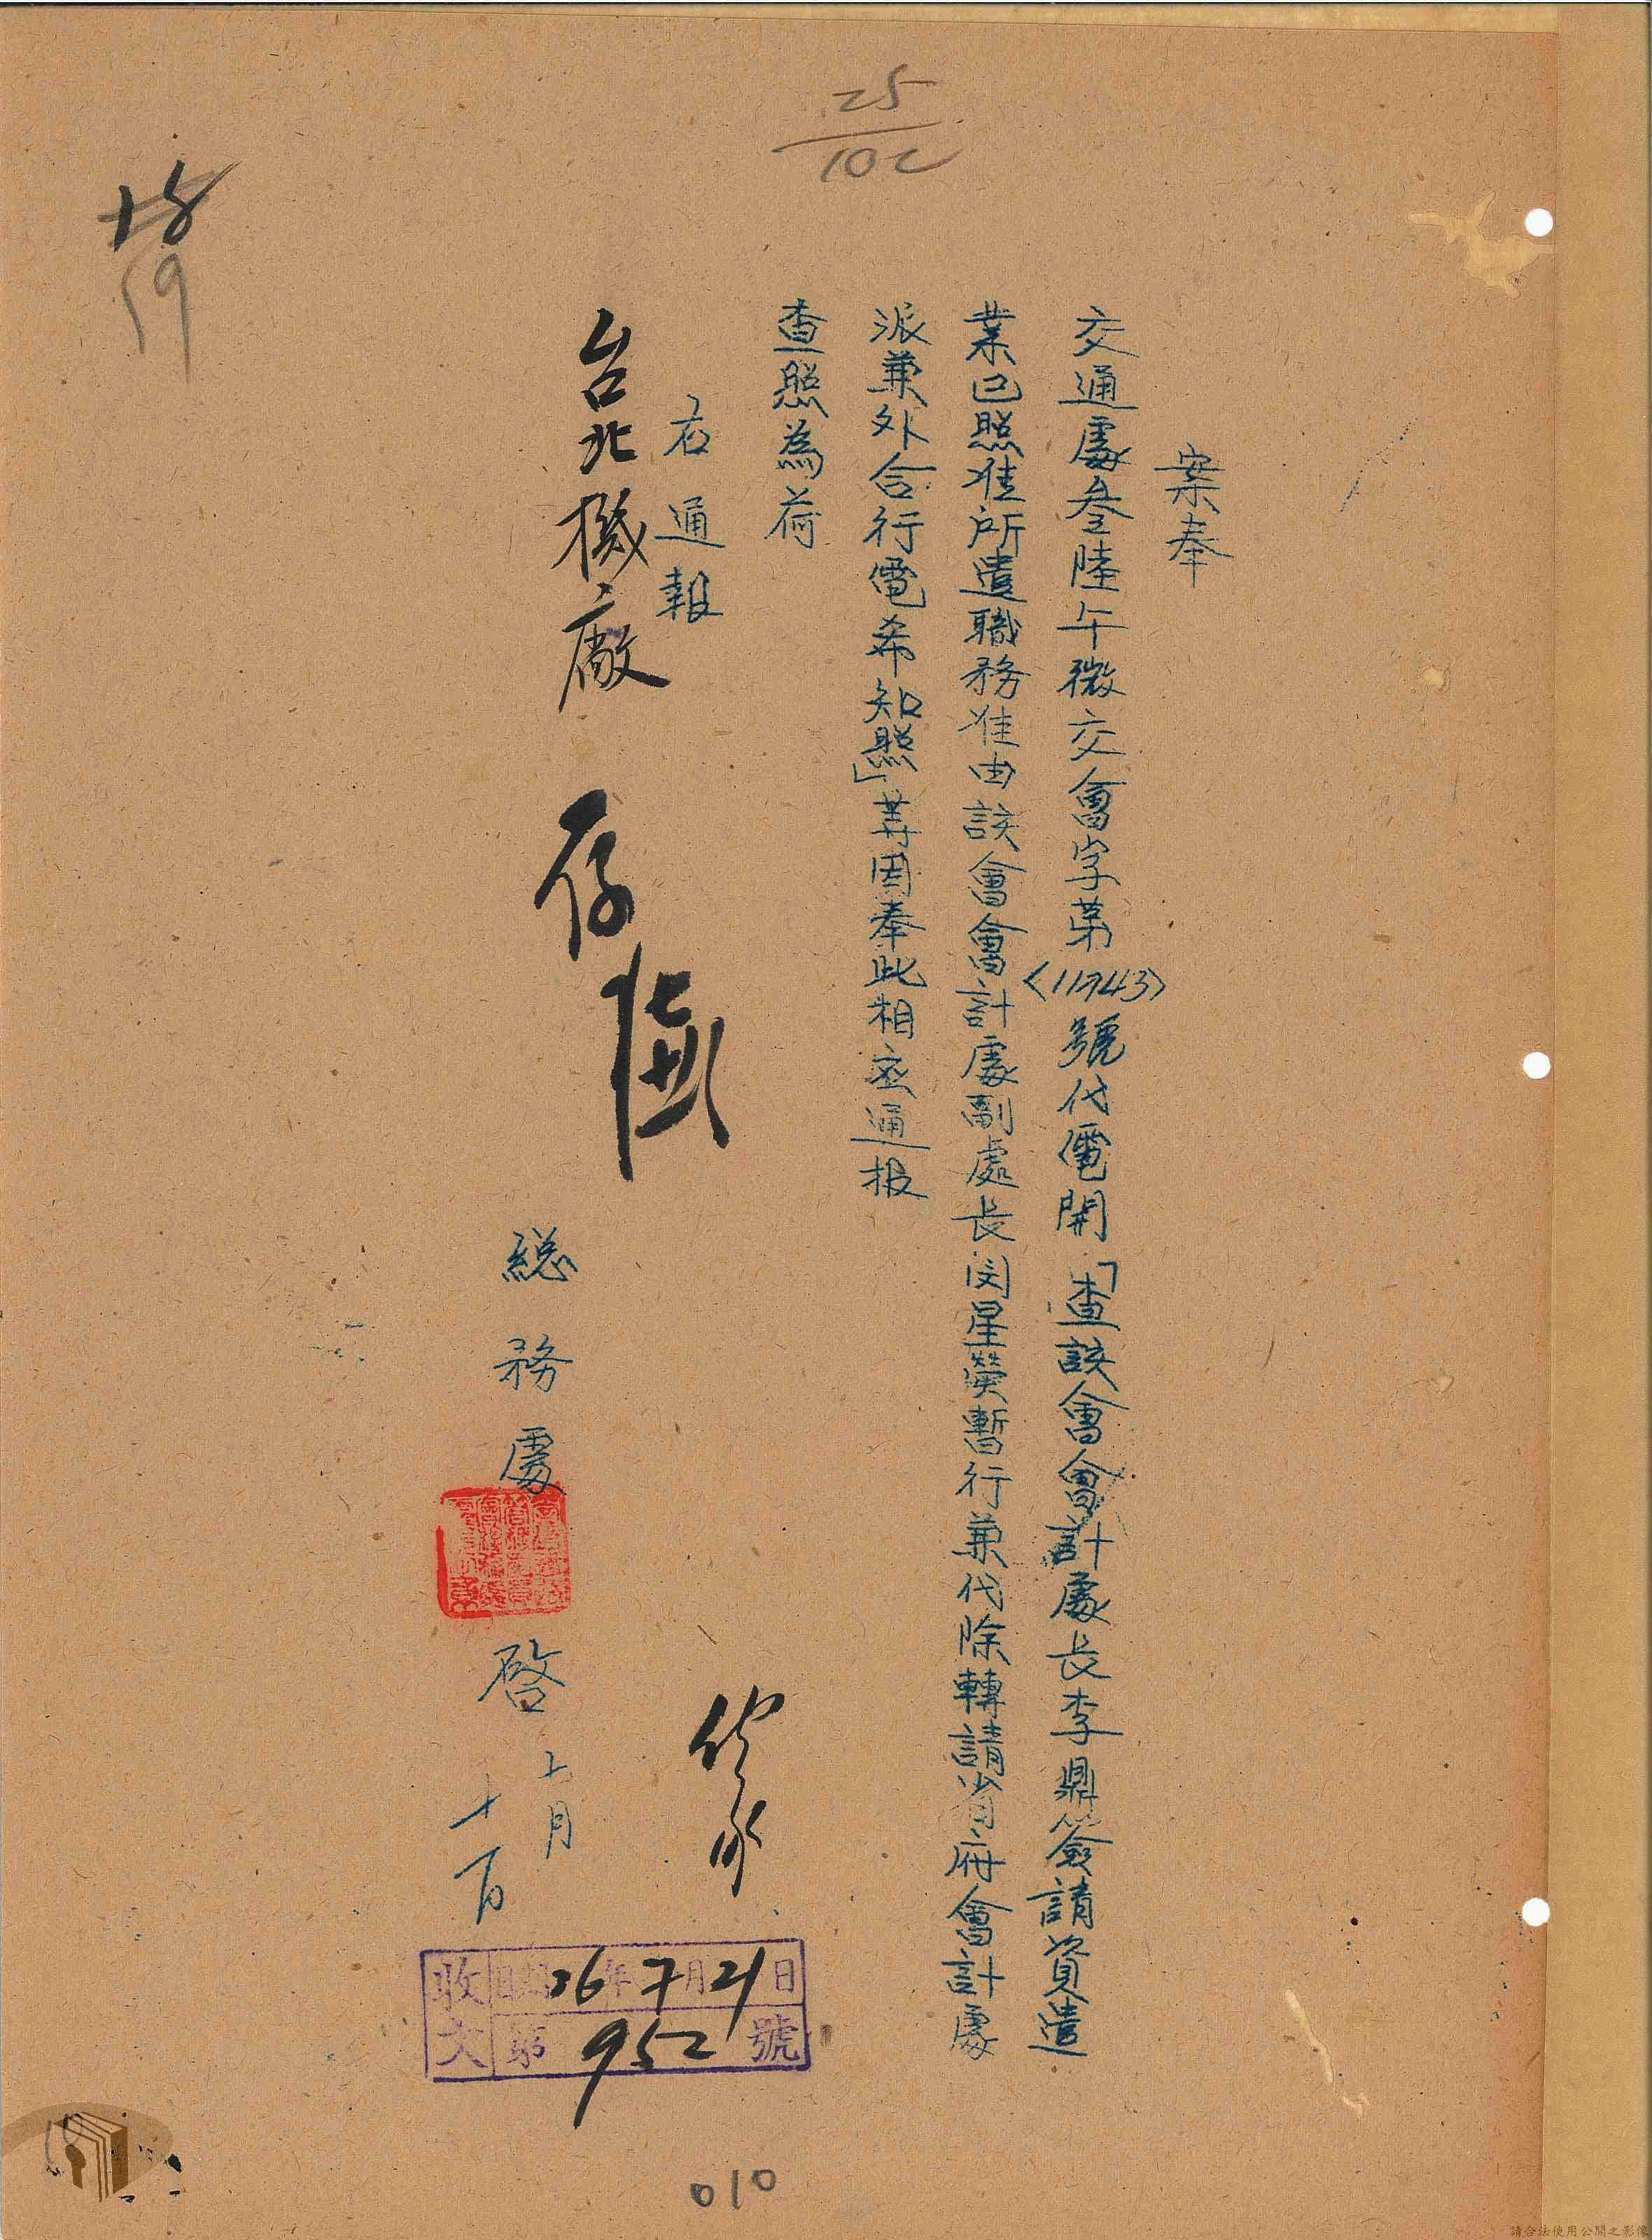 25/102
18
59
案奉
交通處叁陸午微交會字第<11743>號代電開「查該會會計處長李鼎簽請資遣
業已照准所遺職務准由該會會計處副處長閔星熒暫行兼代除轉請省府會計處
派兼外合行電希知照」等因奉此相應通报
查照為荷
右通報
台北機廠
存
總務處
啓
七月
十
收文
36年7月21日
第952號
010
請合法使用公開之影像